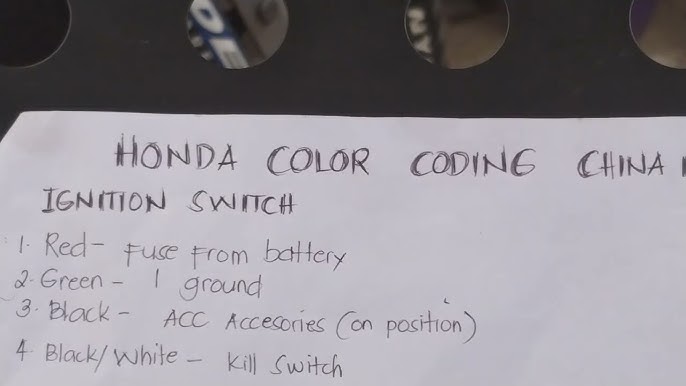 DE
NY
HONDA COLOR CODING CHINA
IGNITION SWITCH
1. Red - Fuse From battery
2. Green - 1 ground
3. Black - ACC Accesories (on position)
4. Black/White - Kill Switch